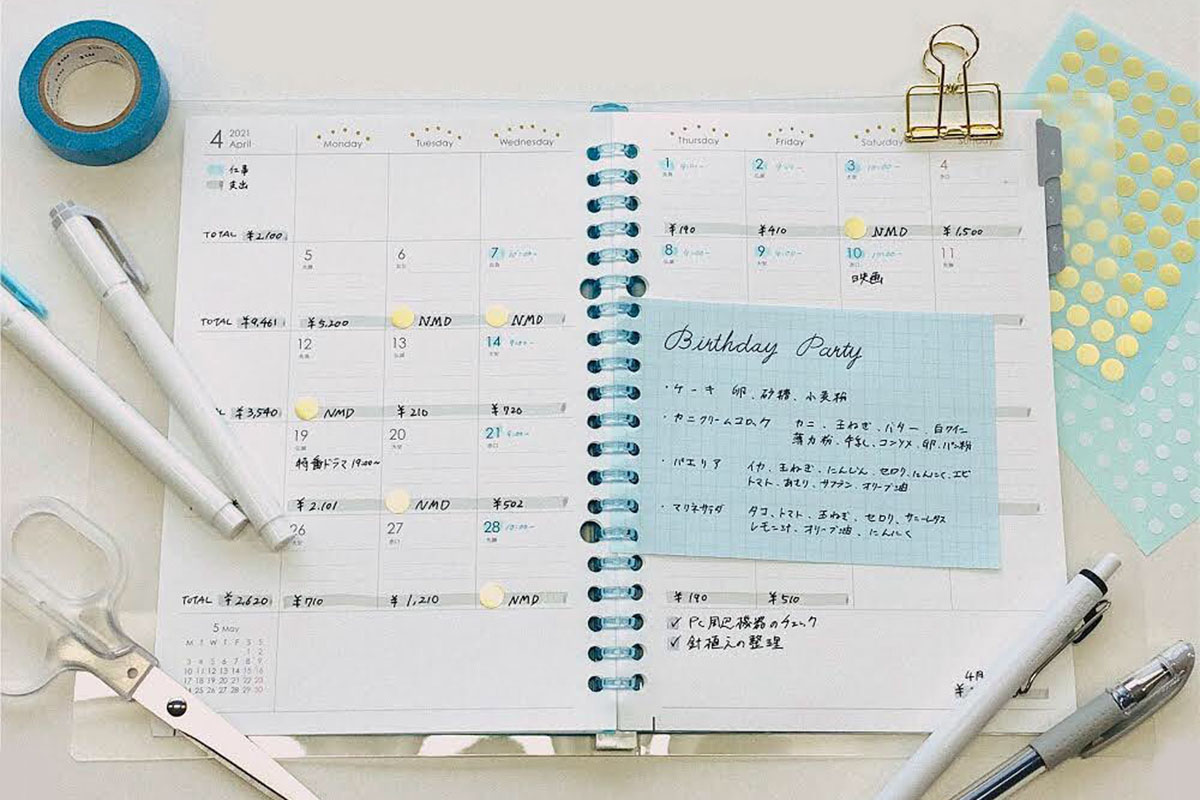 4 2021
April
仕事
支出
Monday Tuesday Wednesday Thursday Friday Saturday
1 2 3 4
TOTAL ¥2,100 ¥190 ¥410 NMD ¥1,500
5 6 7 8 9 10 11
映画
TOTAL ¥9,461 ¥5,200 NMD NMD
12 13 14 9:00~
¥3,540 NMD ¥210 ¥720
19 20 21 9:00~
特番ドラマ 19:00~
¥2,101 NMD ¥502
26 27 28
TOTAL ¥2,620 ¥710 ¥1,210 NMD ¥190 ¥510
Birthday Party
・ケーキ 卵、砂糖、小麦粉
・カニクリームコロッケ カニ、玉ねぎ、バター、白ワイン
薄力粉、牛乳、コンソメ、卵、パン粉
・パエリア イカ、玉ねぎ、にんじん、セロリ、にんにく、エビ
トマト、あさり、サフラン、オリーブ油
・マリネサラダ タコ、トマト、玉ねぎ、セロリ、サニーレタス
レモン汁、オリーブ油、にんにく
PC周辺機器のチェック
鉢植えの整理
5 May
M T W T F S S
1 2
3 4 5 6 7 8 9
10 11 12 13 14 15 16
17 18 19 20 21 22 23
25 26 27 28 29 30
4月
¥
4
5
6